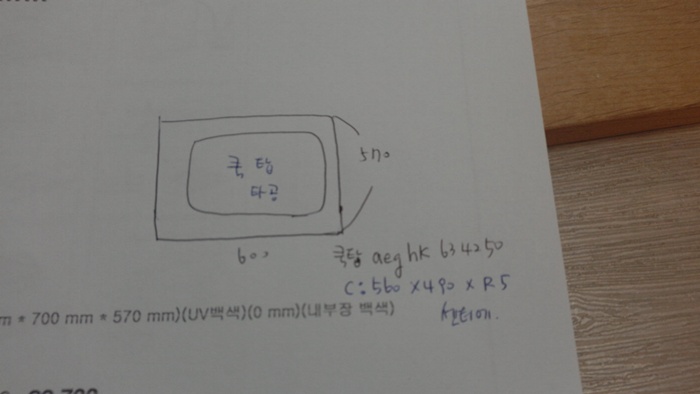 쿡탑
타공
570
600
쿡탑 aeg hk 634250
C: 560 X 490 X R5
센터에.
m * 700 mm * 570 mm)(UV백색)(0 mm)(내부장 백색)